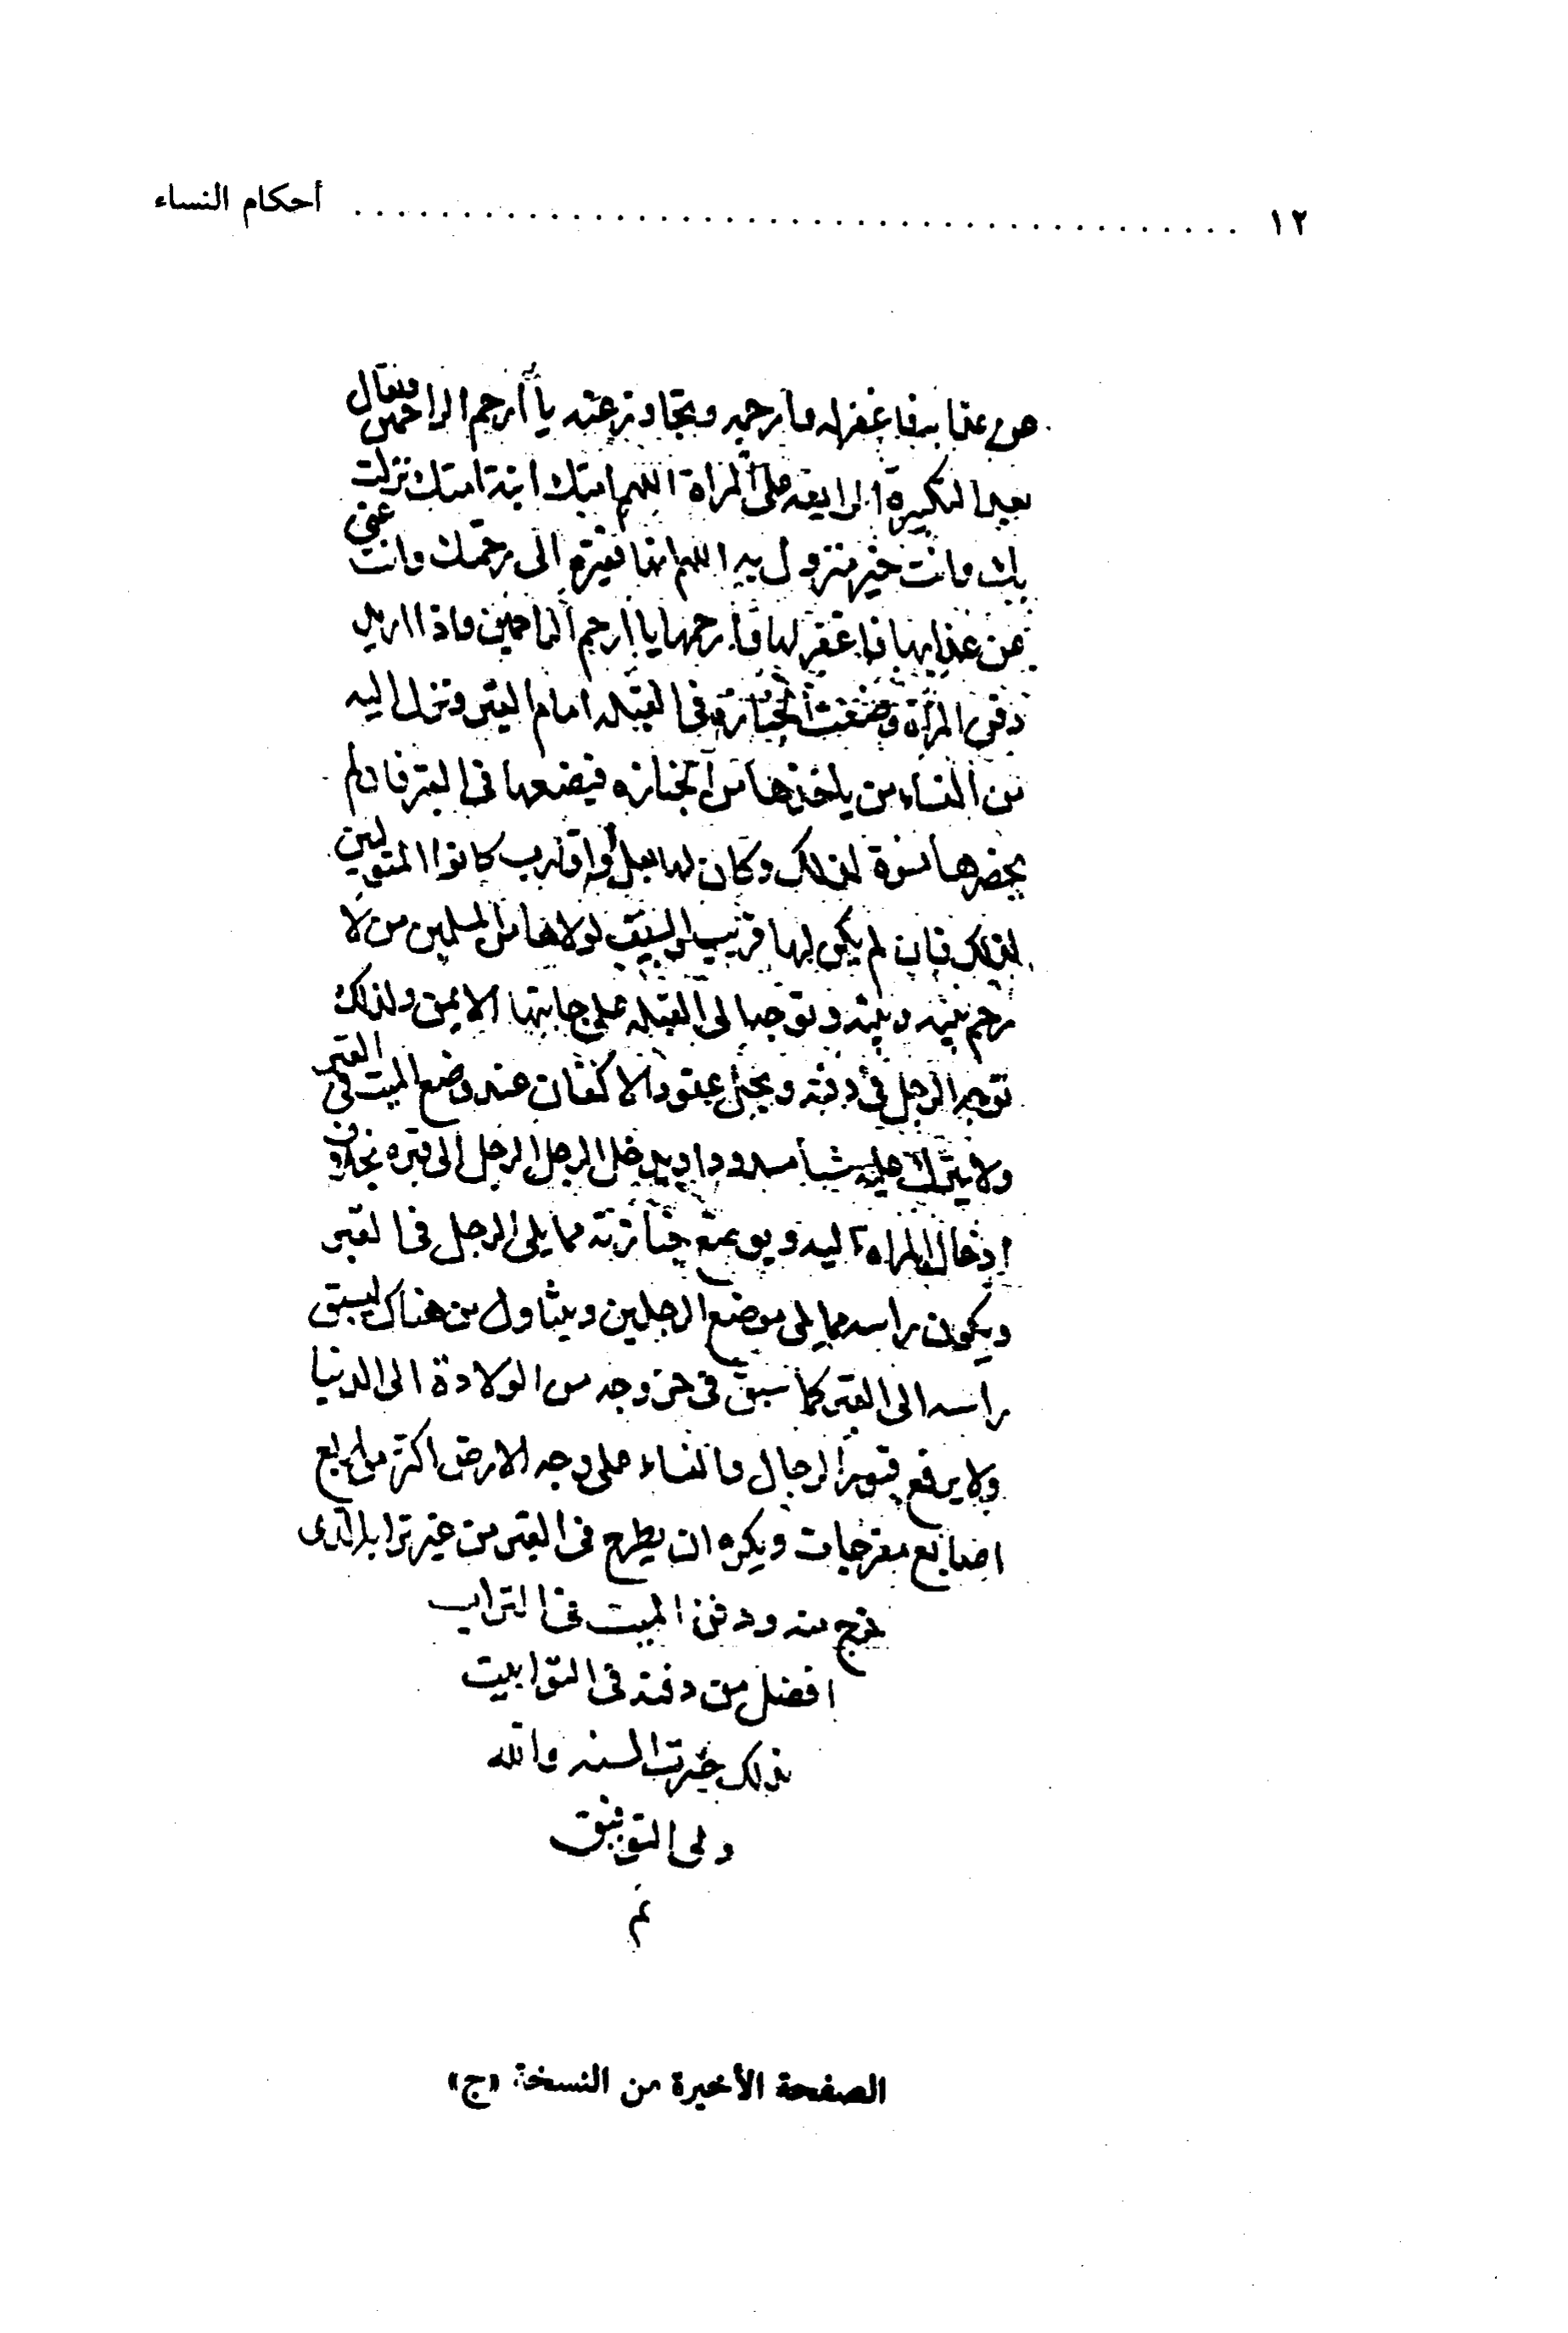 ١٢ ........................................ أحكام النساء
عن عذابه فاغفر له وارحمه وتجاوز عنه يا أرحم الراحمين ويقال
بعد التكبيرة الرابعة على المراة اللهم امتك ابنة امتك نزلت
بك وانت خير منزول به اللهم انها فقيرة الى رحمتك وانت غنى
عن عذابها فاغفر لها وارحمها يا أرحم الراحمين واذا اريد
دفن المرأة وضعت الجنازة فى القبله امام القبر ونزل اليه
من النساء من ياخذها من الجنازه فيضعها فى القبر فان لم
يحضرها نسوة لذلك وكان لها بعل أو اقارب كانوا المتولين
لذلك فان لم يكن لها قريب ولا من المسلمين من لا
رحم بينه وبينه وتوجها لى القبله على جانبها الايمن ولذلك
توجه الرجل فى دفنه ويحل عقود الاكفان عند وضع الميت فى القبر
ولا يترك عليه شيأ مسدودا ويدخل الرجل الرجل الى قبره بخلاف
ادخال المراه اليه ويوضع جنازته مما يلى الرجل فى القبر
ويكون راسه مما يلى موضع الرجلين ويتناول من هناك ليسبق
راسه الى القبر كما سبق فى خروجه من الولادة الى الدنيا
ولا يرفع قبور الرجال والنساء على وجه الارض اكثر من اربع
اصابع مفرجات ويكره ان يطرح فى القبر من غير ترابه الذى
خرج منه ودفن الميت فى التراب
افضل من دفنه فى التوابيت
بذلك جرت السنه والله
ولى التوفيق
تم
الصفحة الأخيرة من النسخة «ج»